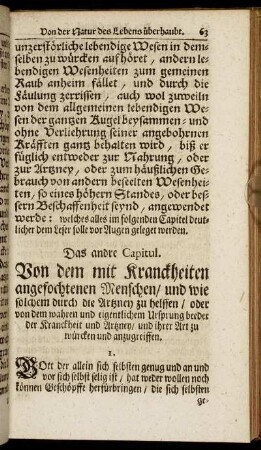 Von der Natur des Lebens überhaubt. 63
unzerstörliche lebendige Wesen in dem-
selben zu würcken aufhöret, andern le-
bendigen Wesenheiten zum gemeinen
Raub anheim fället, und durch die
Fäulung zerrissen, auch wol zuweiln
von dem allgemeinen lebendigen We-
sen der gantzen Kugel beysammen- und
ohne Verliehrung seiner angebohrnen
Kräfften gantz behalten wird, biß er
füglich entweder zur Nahrung, oder
zur Artzney, oder zum häußlichen Ge-
brauch von andern beseelten Wesenhei-
ten, so eines höhern Standes, oder bes-
sern Beschaffenheit seynd, angewendet
werde: welches alles im folgenden Capitel deut-
licher dem Leser solle vor Augen geleget werden.
Das andre Capitul.
Von dem mit Kranckheiten
angefochtenen Menschen/ und wie
solchem durch die Artzney zu helffen/ oder
von dem wahren und eigentlichem Ursprung beeder
der Kranckheit und Artzney/ und ihrer Art zu
würcken und anzugreiffen.
1.
GOtt der allein sich selbsten genug und an und
vor sich selbst selig ist/ hat weder wollen noch
können Geschöpffe herfürbringen/ die sich selbsten
ge-